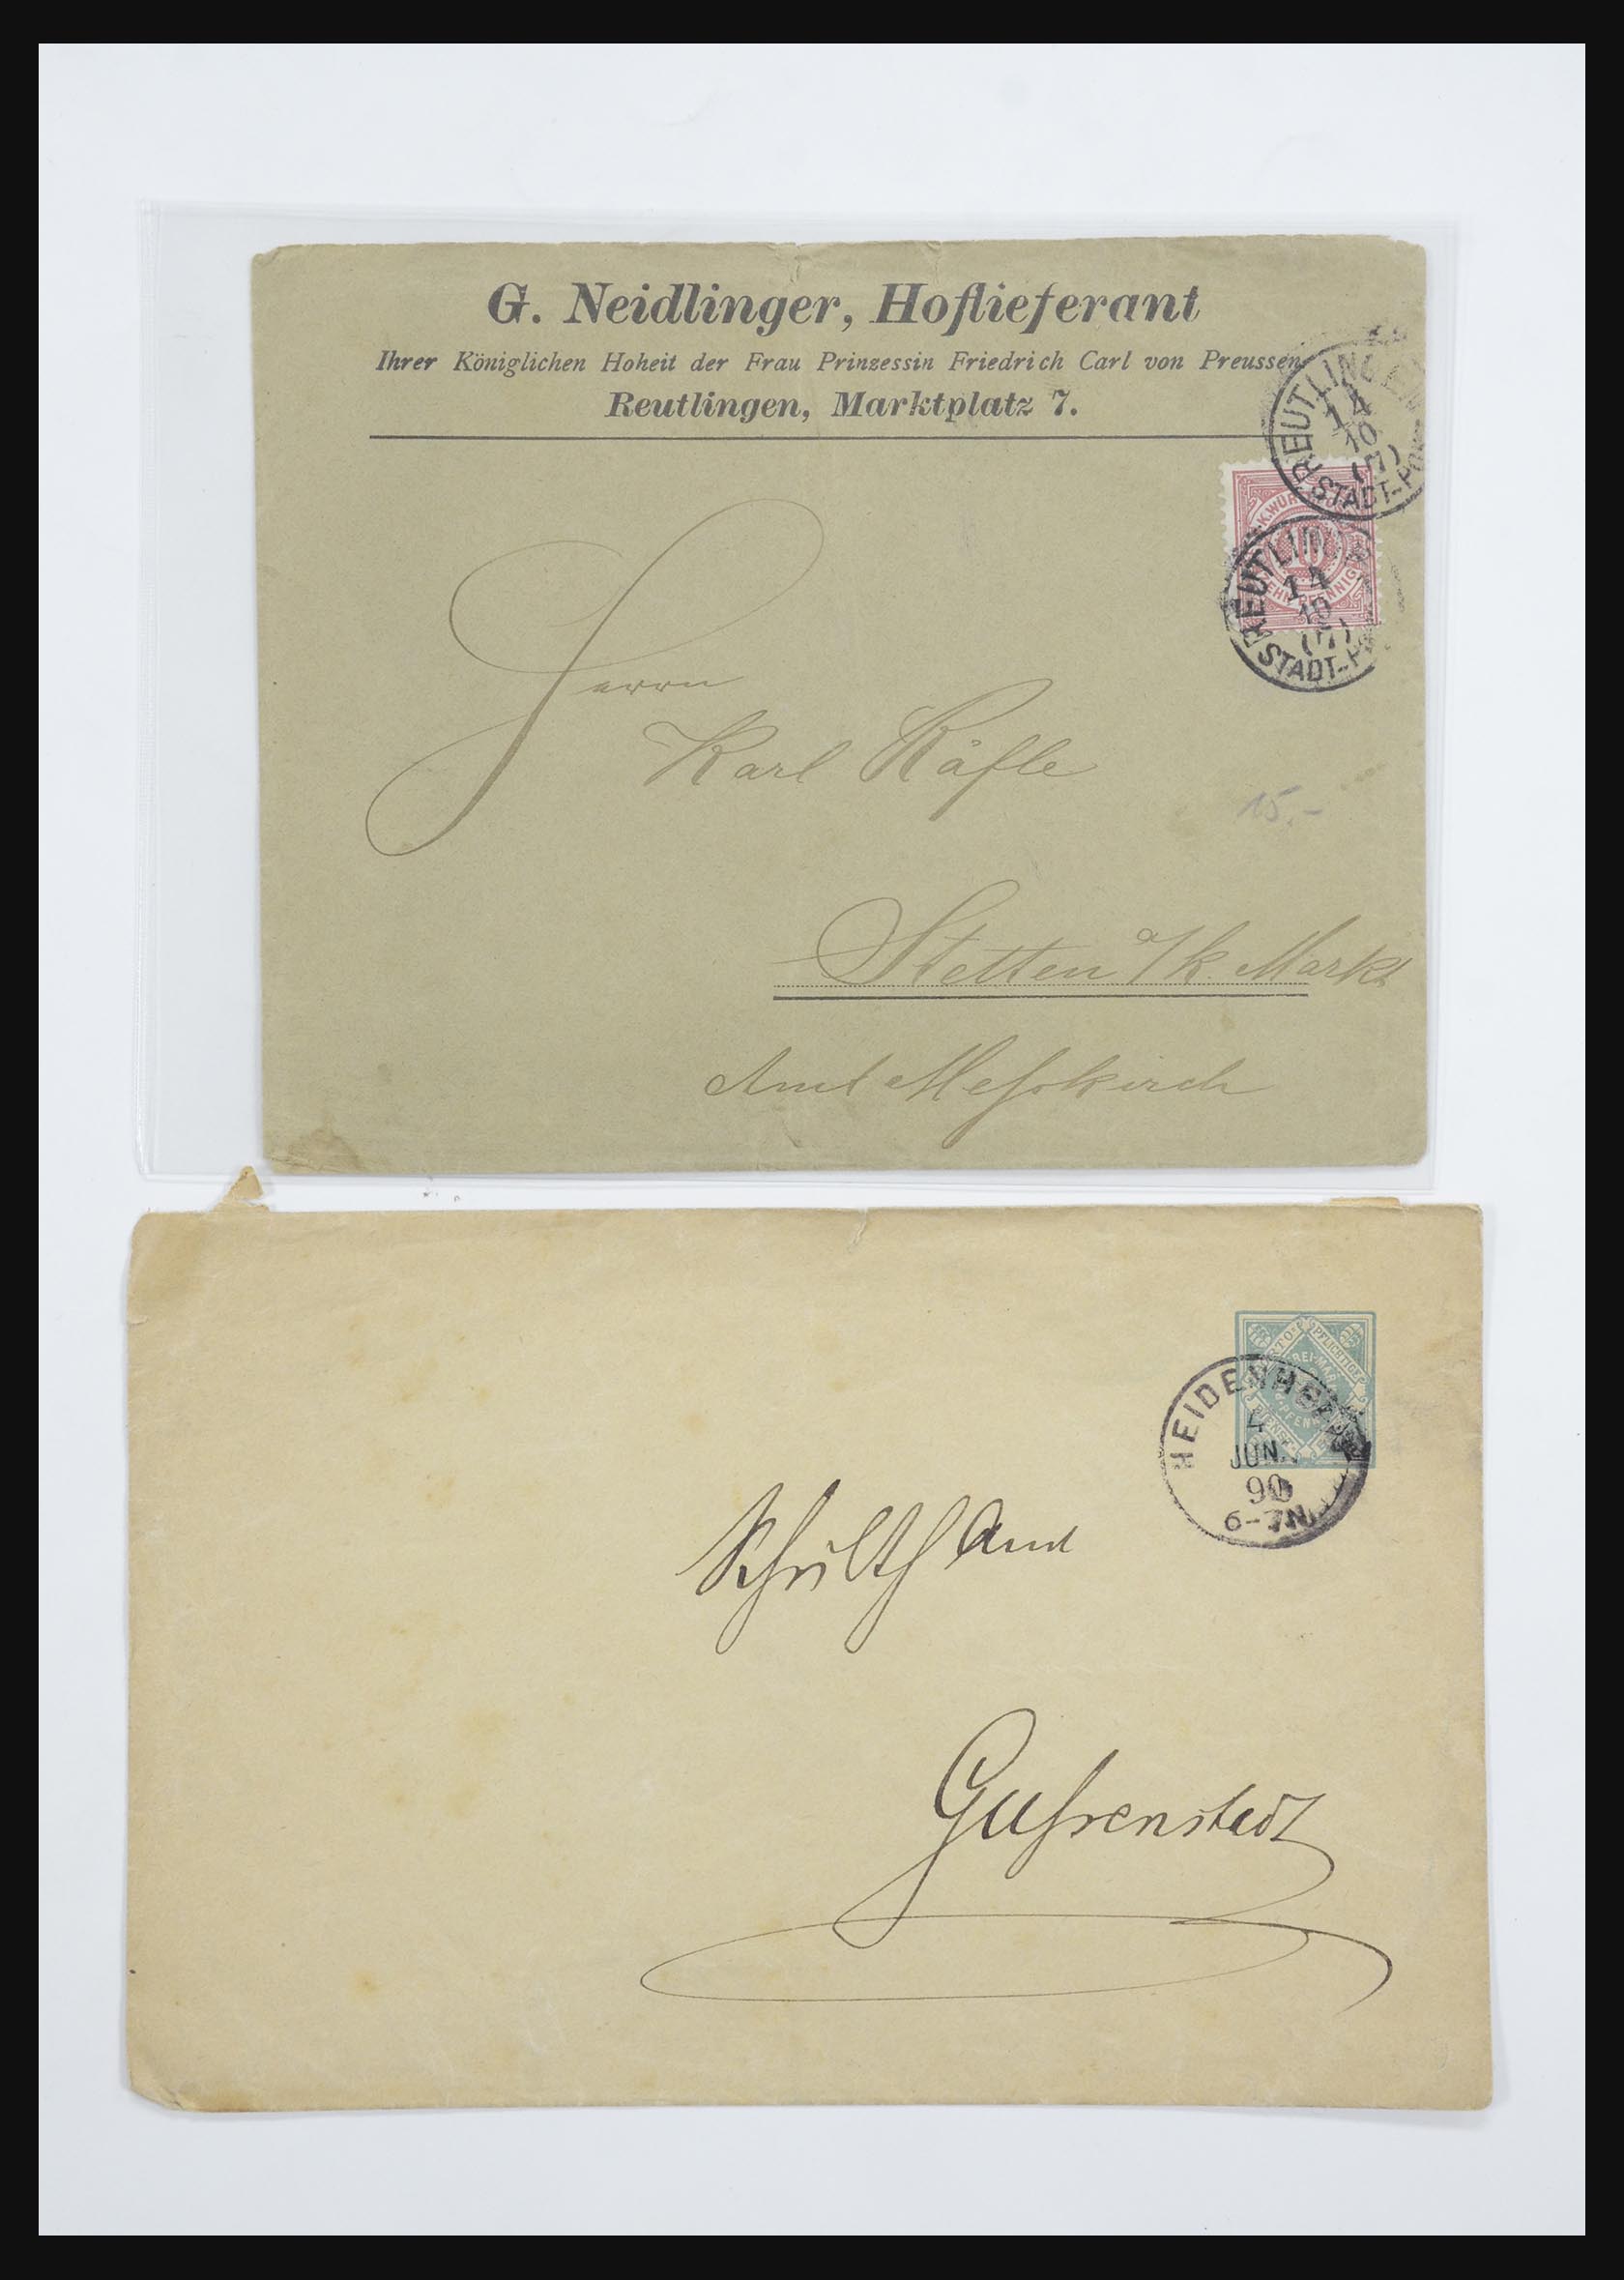 G. Neidlinger, Hoflieferant
Ihrer Königlichen Hoheit der Frau Prinzessin Friedrich Carl von Preussen
Reutlingen, Marktplatz 7.
REUTLINGEN
14
10
(7)
STADT-PO
K.WÜR
10
ZEHN PFENNIG
REUTLIN
14
10
(7)
STADT-P
Herrn
Karl Käfle
15.-
Stetten a/k. Markt
Amt Meßkirch
PFLICHTIGE
HEIDENHEIM
4
JUN.
90
6-7N
Schulth Amt
Gussenstadt